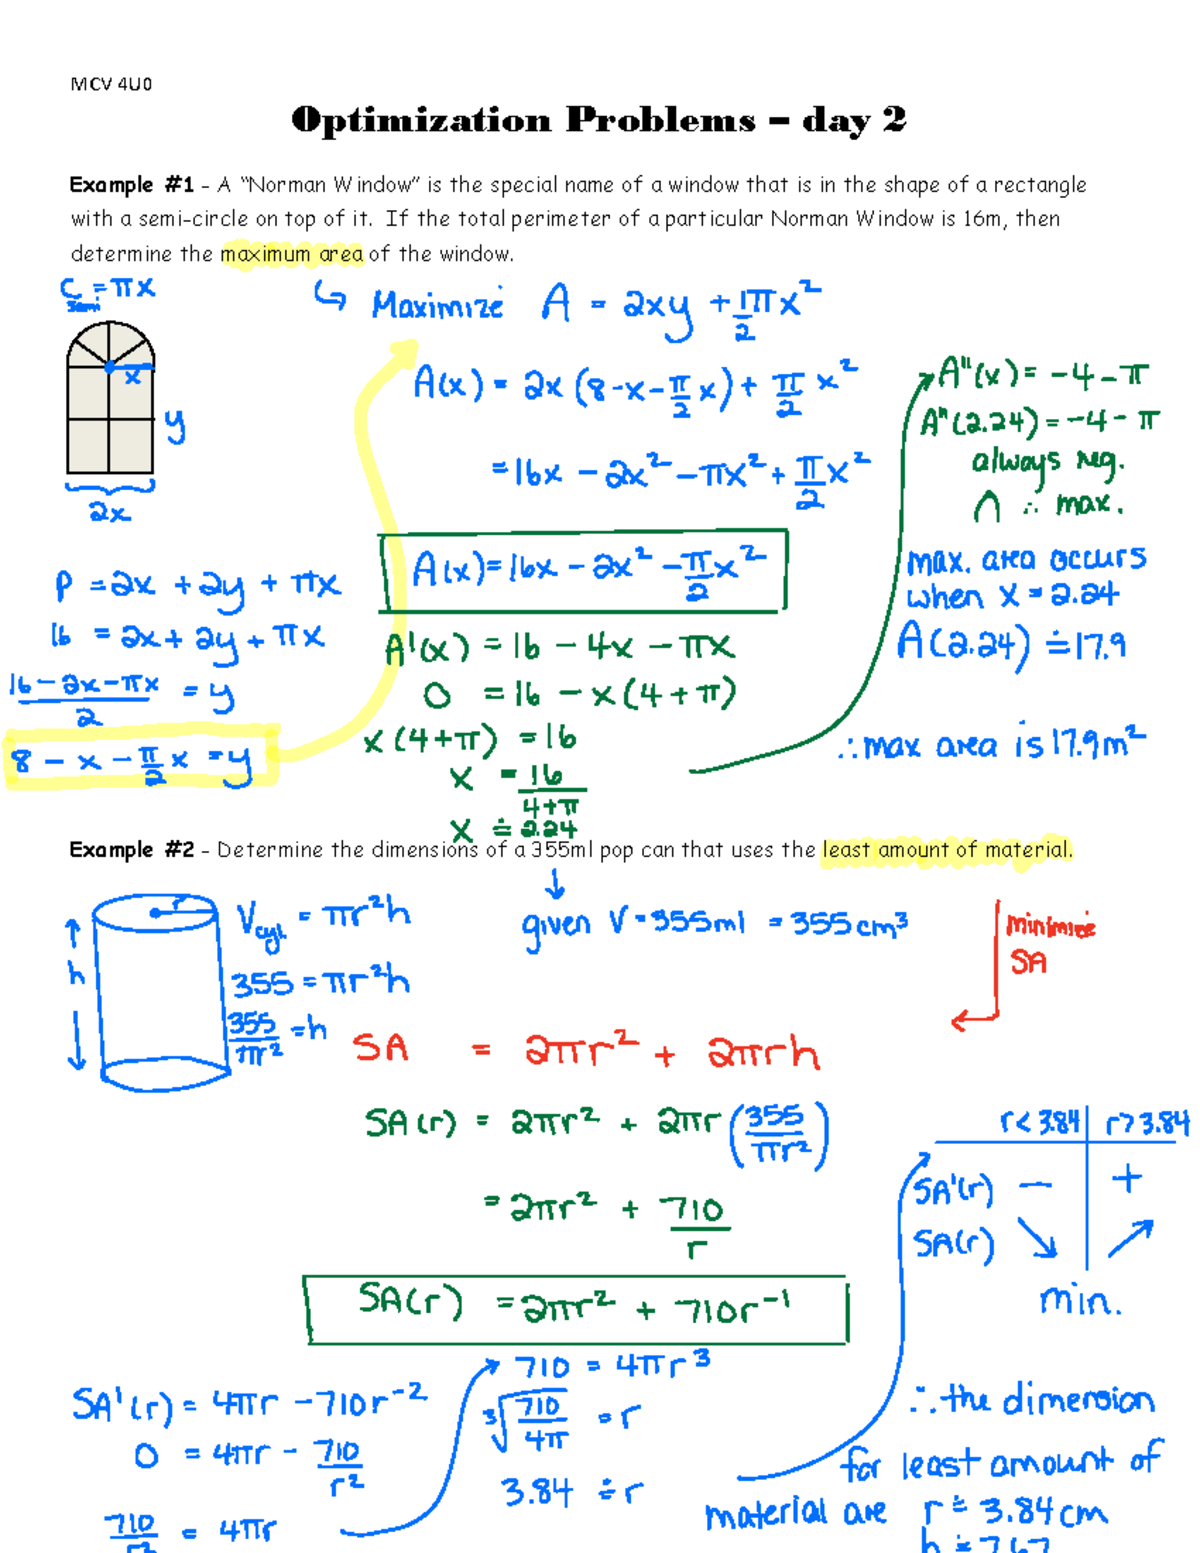 MCV 4U0
Optimization Problems – day 2
Example #1 - A “Norman Window” is the special name of a window that is in the shape of a rectangle
with a semi-circle on top of it. If the total perimeter of a particular Norman Window is 16m, then
determine the maximum area of the window.
C semi = πx
x
y
2x
P = 2x + 2y + πx
16 = 2x + 2y + πx
(16 - 2x - πx)/2 = y
8 - x - π/2 x = y
↳ Maximize A = 2xy + 1/2 πx²
A(x) = 2x (8 - x - π/2 x) + π/2 x²
= 16x - 2x² - πx² + π/2 x²
A(x) = 16x - 2x² - π/2 x²
A'(x) = 16 - 4x - πx
0 = 16 - x(4 + π)
x(4+π) = 16
x = 16/(4+π)
x ≐ 2.24
A"(x) = -4 - π
A"(2.24) = -4 - π
always neg.
∩ ∴ max.
max. area occurs
when x = 2.24
A(2.24) ≐ 17.9
∴ max area is 17.9m²
Example #2 - Determine the dimensions of a 355ml pop can that uses the least amount of material.
r
h
V cyl = πr²h
355 = πr²h
355/πr² = h
given V = 355ml = 355cm³
minimize
SA
SA = 2πr² + 2πrh
SA(r) = 2πr² + 2πr (355/πr²)
= 2πr² + 710/r
SA(r) = 2πr² + 710r⁻¹
SA'(r) = 4πr - 710r⁻²
0 = 4πr - 710/r²
710/r² = 4πr
710 = 4πr³
∛(710/4π) = r
3.84 ≐ r
r < 3.84 r > 3.84
SA'(r) − +
SA(r) ↘ ↗
min.
∴ the dimension
for least amount of
material are r ≐ 3.84cm
h ≐ 7.67